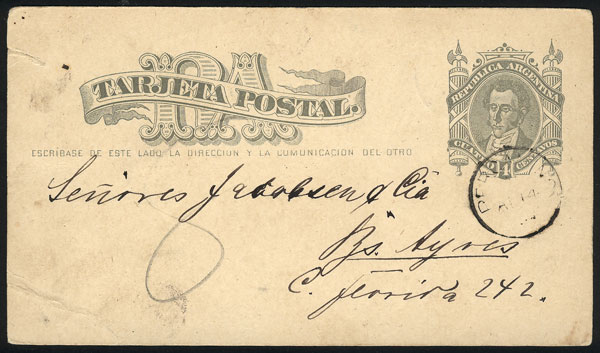 RA
TARJETA POSTAL.
REPUBLICA ARGENTINA
CUATRO 4 CENTAVOS
ESCRÍBASE DE ESTE LADO LA DIRECCION Y LA COMUNICACIÓN DEL OTRO
Señores Jacobsen & Cia
Bs. Ayres
C. Florida 242.